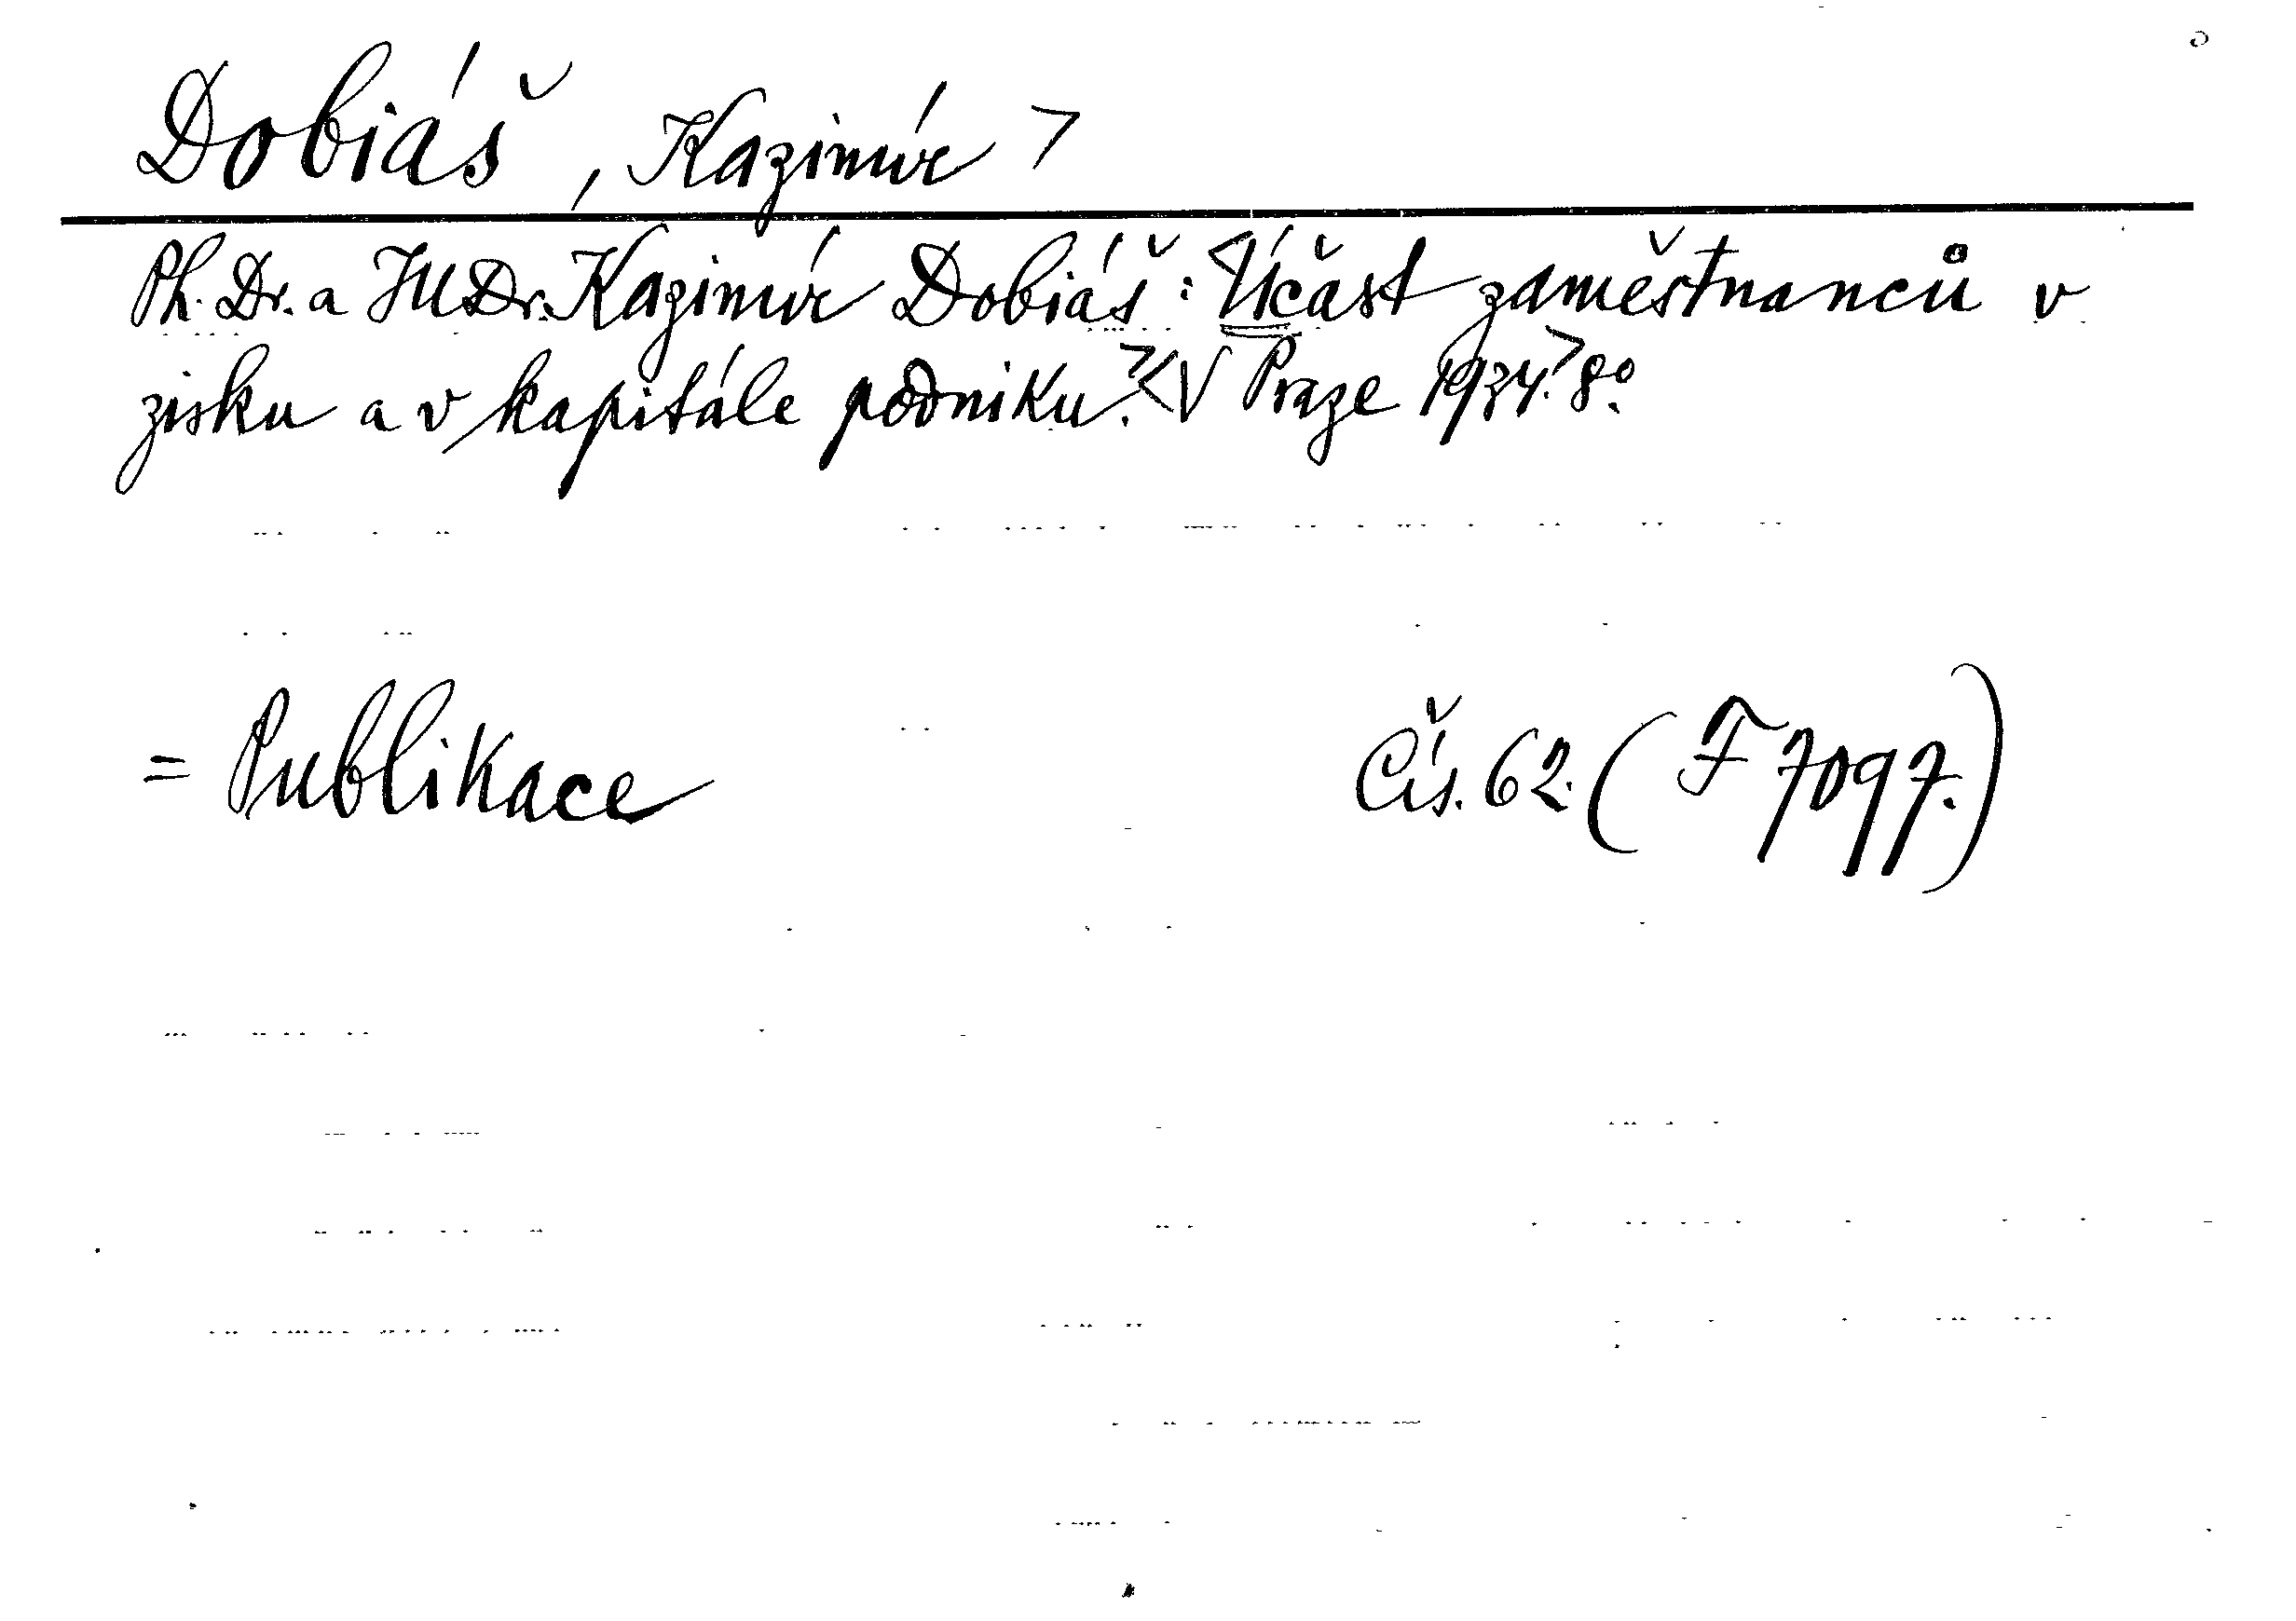 Dobiáš, Kazimír >
Ph. Dr. a JUDr. Kazimír Dobiáš: <Účast zaměstnanců v
zisku a v kapitále podniku.> <V Praze 1934.> 8º.
= Publikace Čís. 62. (F 7097.)